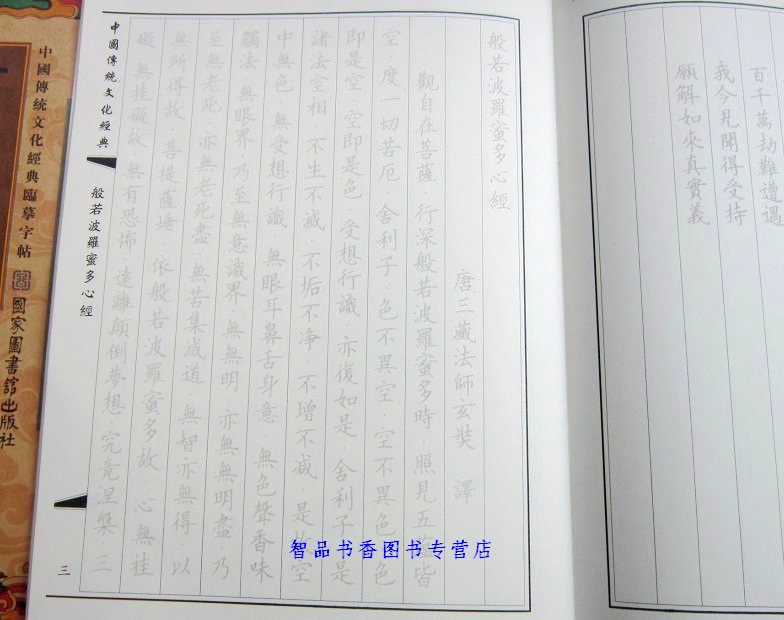 百千萬劫難遭遇
我今見聞得受持
願解如來真實義
般若波羅蜜多心經
唐三藏法師玄奘 譯
觀自在菩薩·行深般若波羅蜜多時·照見五蘊皆
空·度一切苦厄·舍利子·色不異空·空不異色·色
即是空·空即是色·受想行識·亦復如是·舍利子·是
諸法空相·不生不滅·不垢不净·不增不減·是故空
中無色·無受想行識·無眼耳鼻舌身意·無色聲香味
觸法·無眼界·乃至無意識界·無無明·亦無無明盡·乃
至無老死·亦無老死盡·無苦集滅道·無智亦無得·以
無所得故·菩提薩埵·依般若波羅蜜多故·心無挂
礙·無挂礙故·無有恐怖·遠離顛倒夢想·究竟涅槃·三
中國傳統文化經典
般若波羅蜜多心經
三
中國傳統文化經典臨摹字帖
國家圖書館出版社
智品书香图书专营店